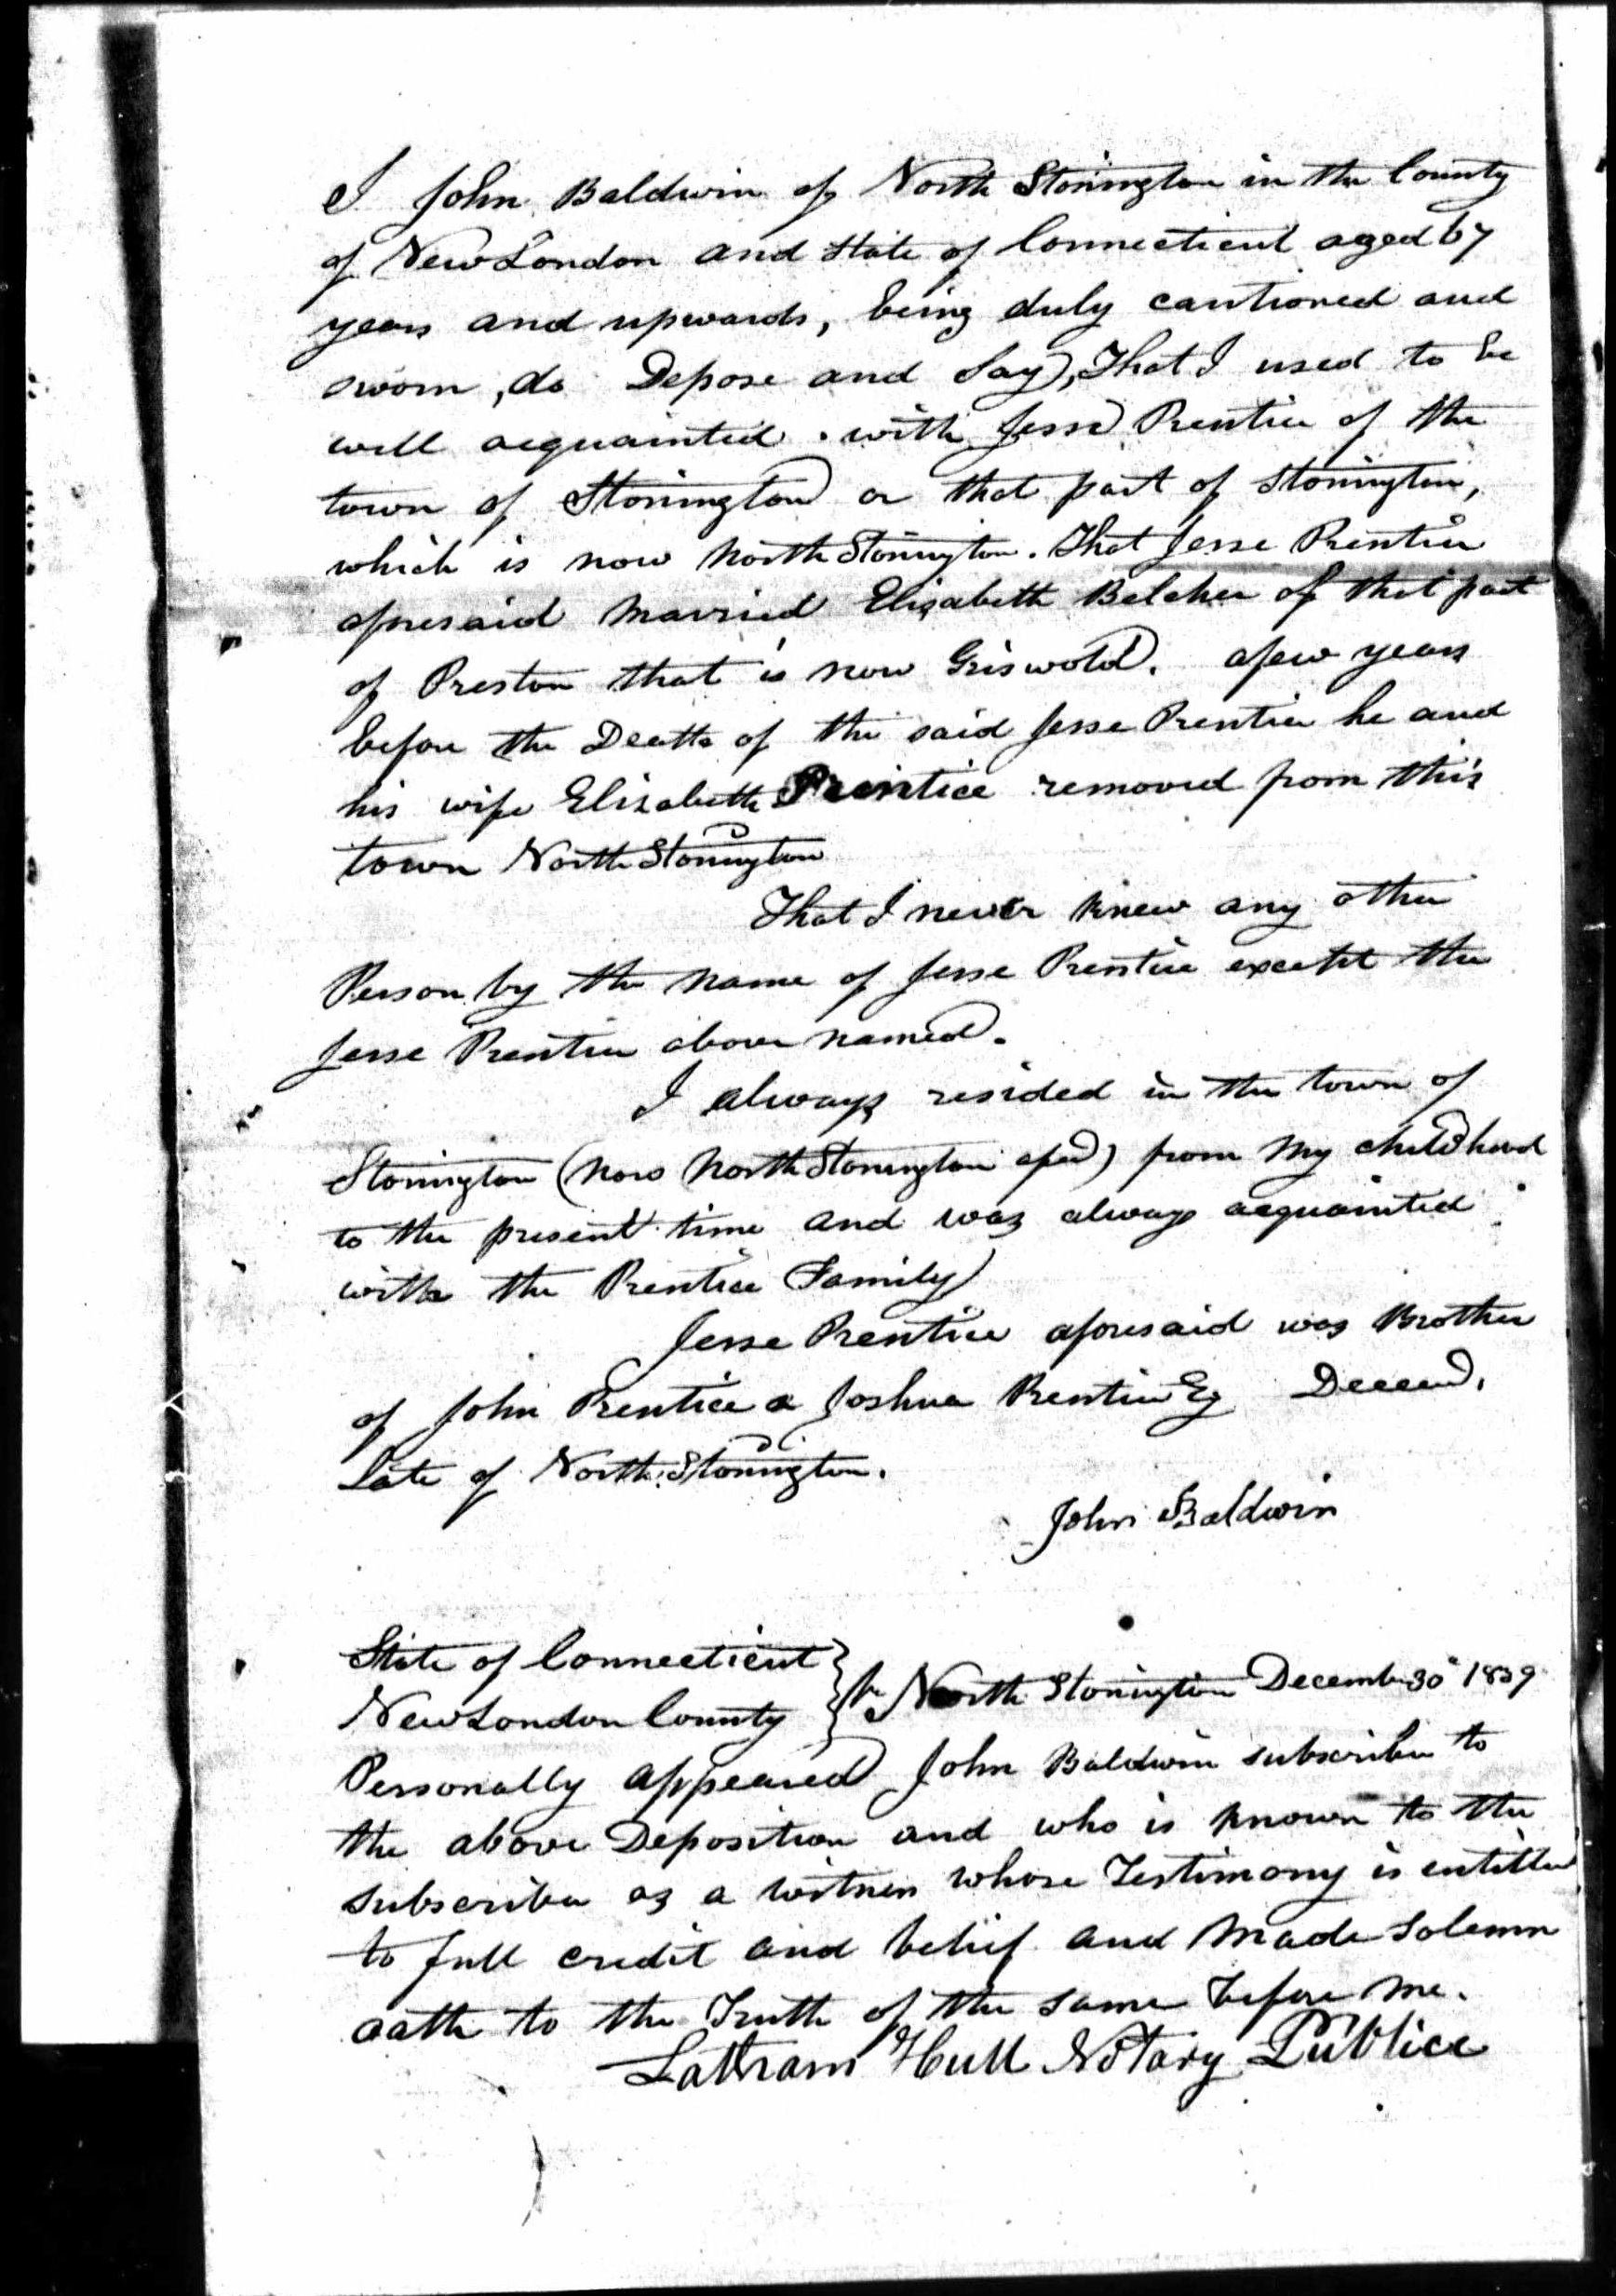 I John Baldwin of North Stonington in the County
of New London and State of Connecticut aged 67
years and upwards, being duly cautioned and
sworn, do Depose and Say, That I used to be
well acquainted with Jesse Prentice of the
town of Stonington or that part of Stonington,
which is now North Stonington. That Jesse Prentice
aforesaid Married Elizabeth Belcher of that part
of Preston that is now Griswold. afew years
before the Death of the said Jesse Prentice he and
his wife Elizabeth Prentice removed from this
town North Stonington
That I never knew any other
Person by the name of Jesse Prentice except the
Jesse Prentice above named.
I always resided in the town of
Stonington (now North Stonington afsd) from My childhood
to the present time and was always acquainted
with the Prentice Family
Jesse Prentice aforesaid was Brother
of John Prentice & Joshua Prentice Esq Deceasd.
Late of North Stonington.
John Baldwin
State of Connecticut
New London County } North Stonington December 30th 1839
Personally appeared John Baldwin subscriber to
the above Deposition and who is known to the
subscriber as a witness whose Testimony is entitled
to full credit and belief and Made Solemn
oath to the Truth of the same before me.
Latham Hull Notary Publice